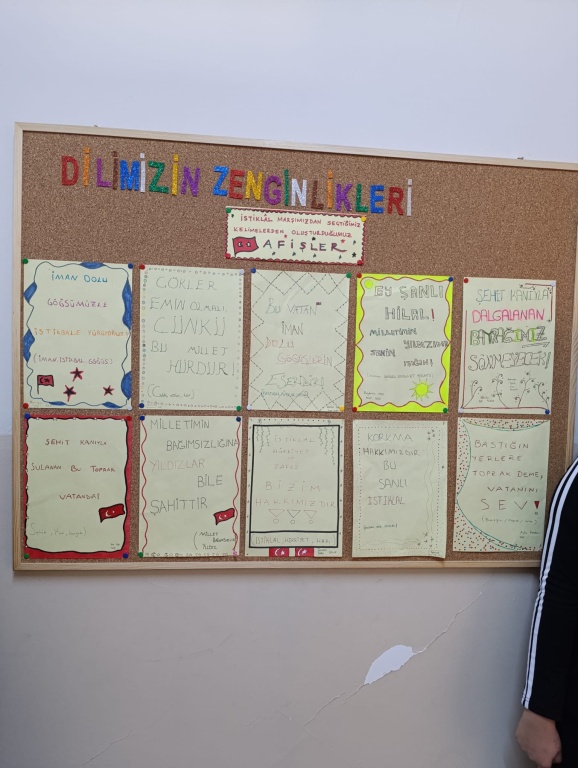 DİLİMİZİN ZENGİNLİKLERİ
İSTİKLÂL MARŞIMIZDAN SEÇTİĞİMİZ
KELİMELERDEN OLUŞTURDUĞUMUZ
AFİŞLER
İMAN DOLU
GÖĞSÜMÜZLE
İSTİKLALE YÜRÜYORUZ
(İMAN, İSTİKLAL, GÖĞÜS)
GÖKLER
EMİN OLMALI,
ÇÜNKÜ
BU MİLLET
HÜRDÜR!
BU VATAN
İMAN
DOLU
GÖĞÜSLERİN
ESERİDİR!
EY ŞANLI
HİLAL!
MİLLETİMİN
YILDIZININ
SENİN
IŞIĞIN!
ŞEHİT KANIYLA
DALGALANAN
BAYRAĞIMIZ
SÖNMEYECEK!
ŞEHİT KANIYLA
SULANAN BU TOPRAK
VATANDIR!
MİLLETİMİN
BAĞIMSIZLIĞINA
YILDIZLAR
BİLE
ŞAHİTTİR
(MİLLET
YILDIZ
İSTİKLAL
HÜRRİYET
BİZİM
HAKKIMIZDIR
(İSTİKLAL, HÜRRİYET, HAK)
KORKMA
HAKKIMIZDIR
BU
ŞANLI
İSTİKLAL
BASTIĞIN
YERLERE
TOPRAK DEME,
VATANINI
SEV